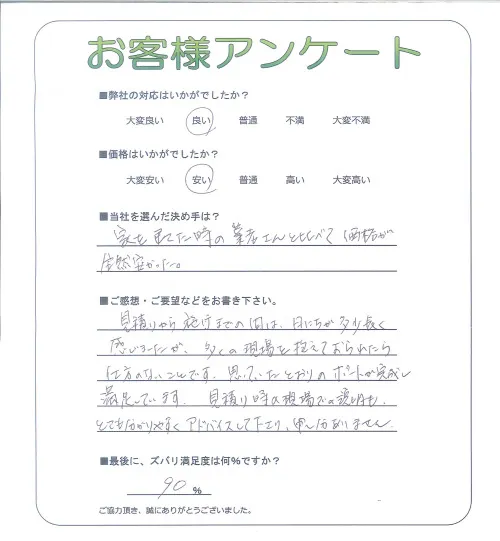 お客様アンケート
■弊社の対応はいかがでしたか？
大変良い 良い 普通 不満 大変不満
■価格はいかがでしたか？
大変安い 安い 普通 高い 大変高い
■当社を選んだ決め手は？
家を建てた時の業者さんと比べて価格が
全然安かった。
■ご感想・ご要望などをお書き下さい。
見積りから までの間は、日にちが多少長く
感じましたが、多くの現場を抱えておられたら
仕方のないことです。思っていたとおりのポートが完成し
満足しています。見積り時の現場での説明も、
とても分かりやすくアドバイスして下さり、申し分ありません。
■最後に、ズバリ満足度は何%ですか？
90 %
ご協力頂き、誠にありがとうございました。